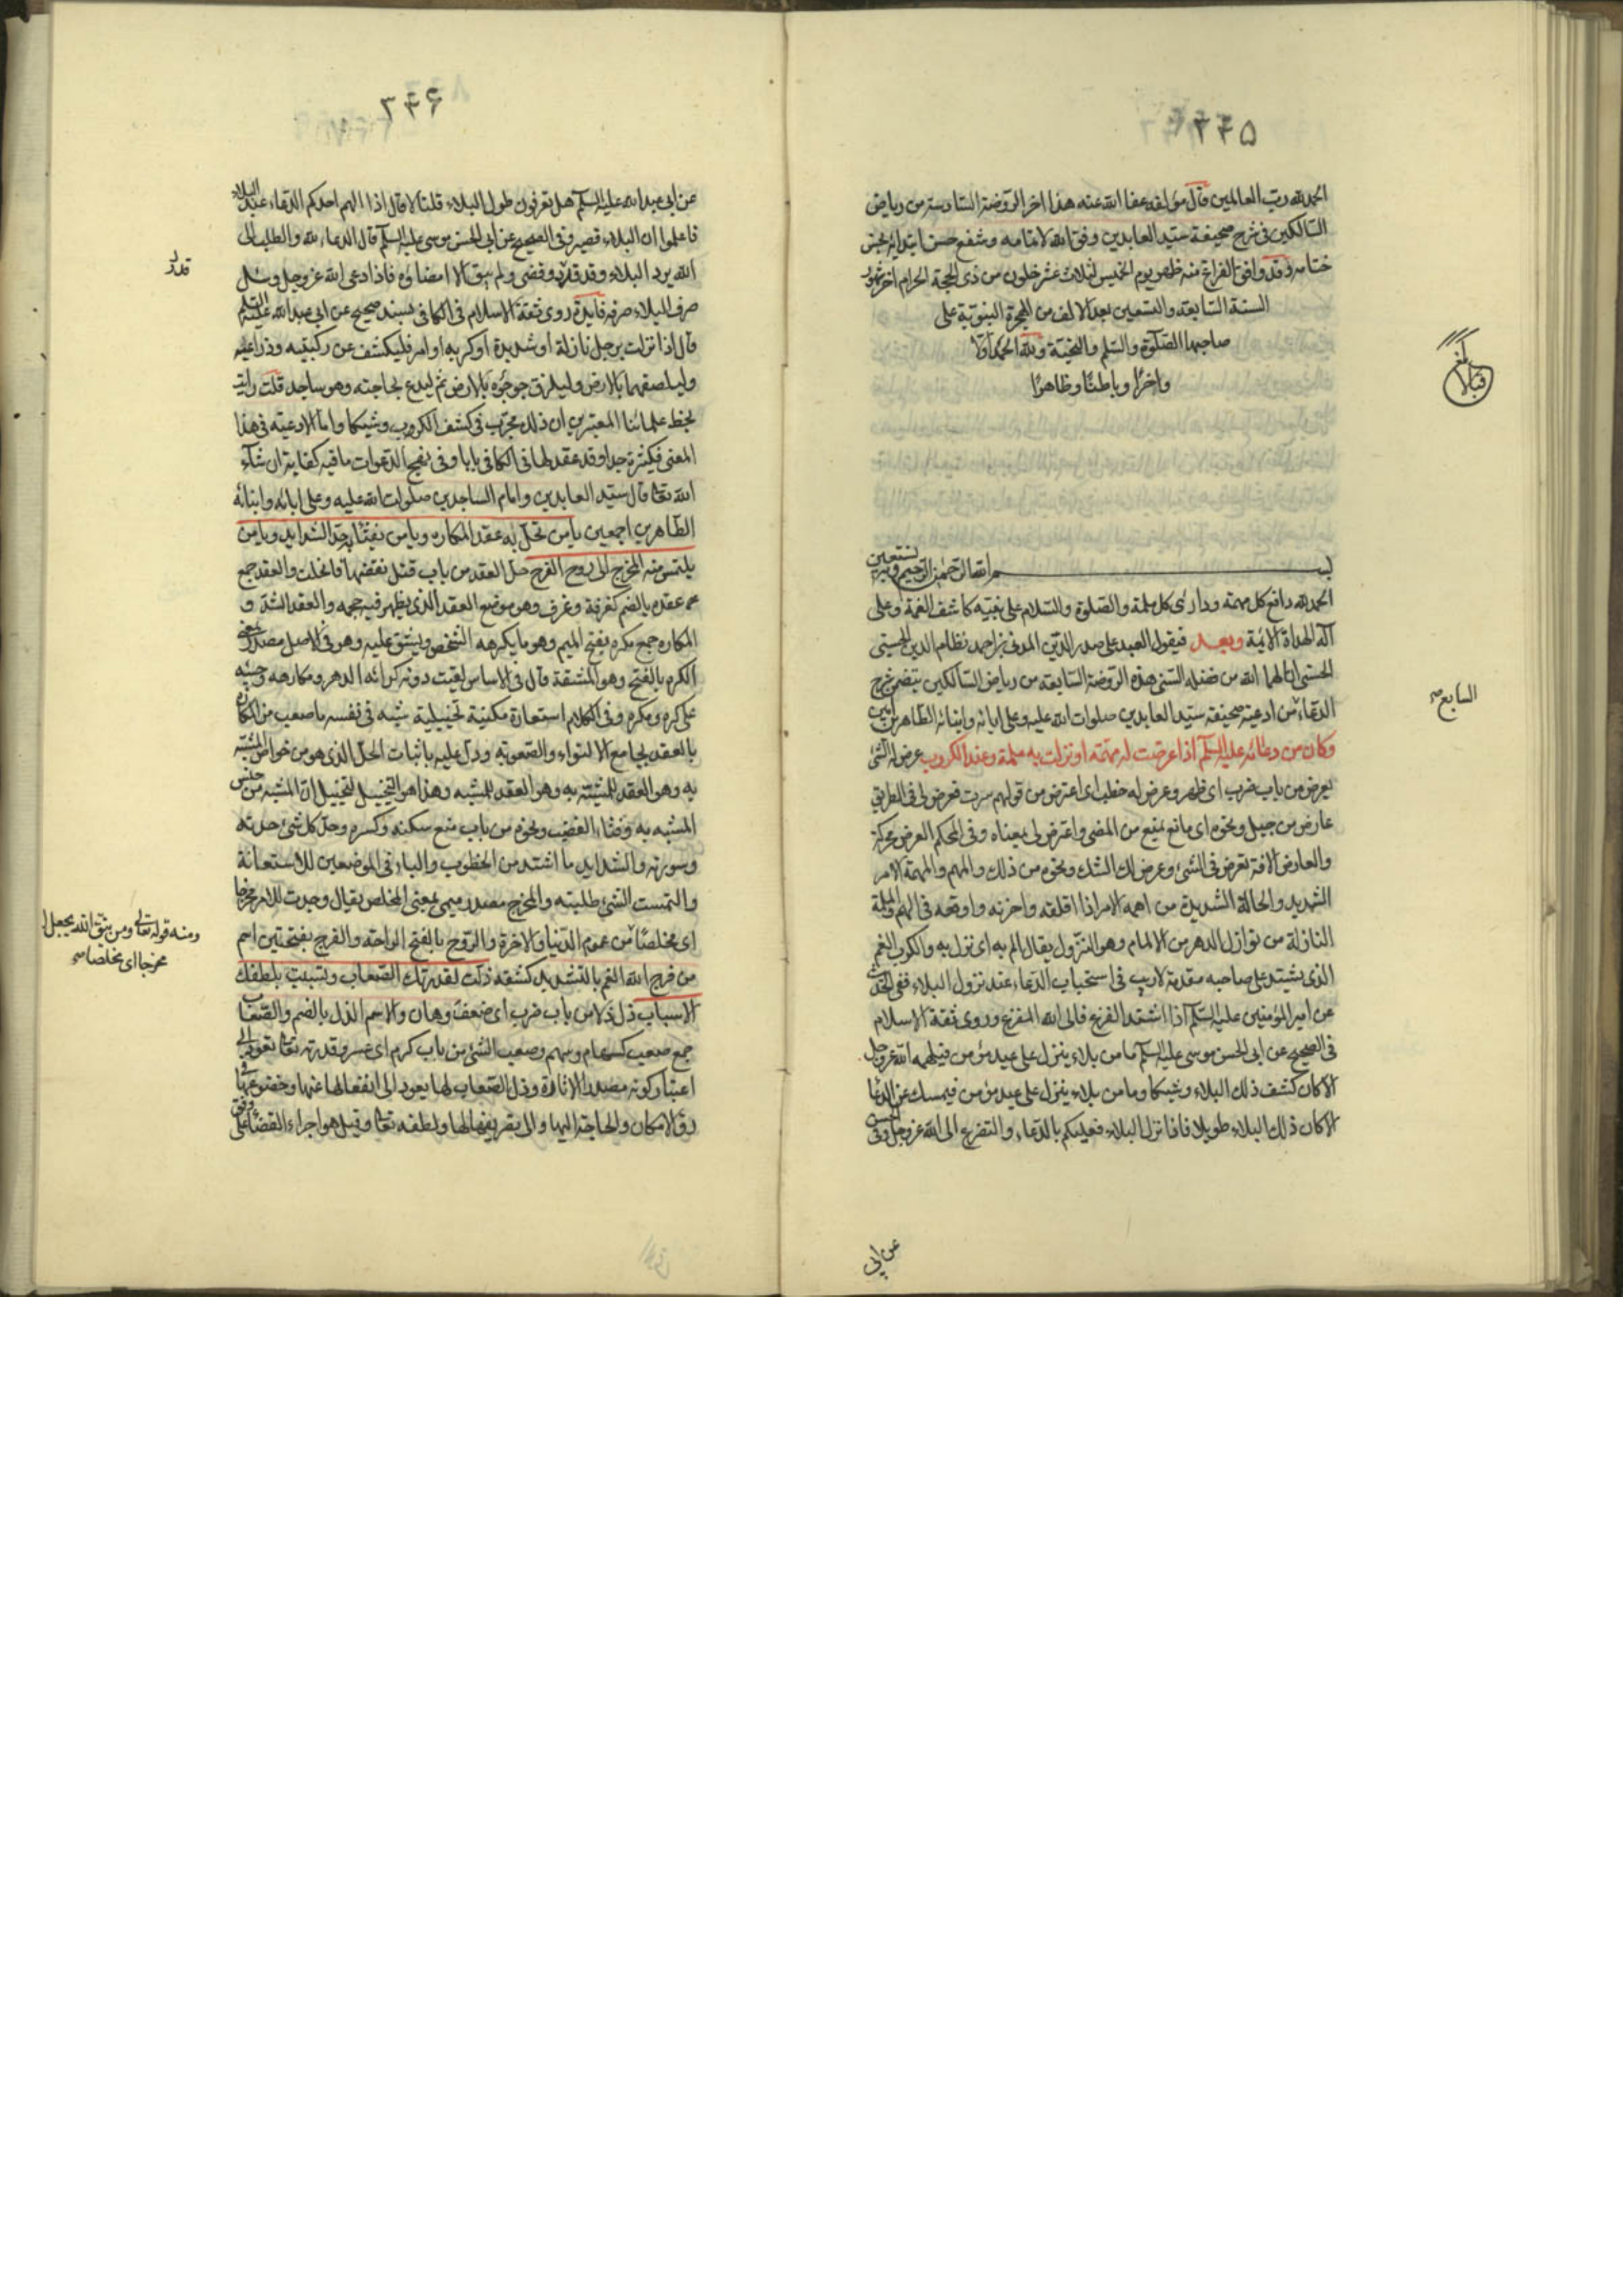 ٣٤٥
الحمد لله رب العالمين قال مؤلفه عفا الله عنه هذا اخر الروضة السادسة من رياض
السالكين فى شرح صحيفة سيد العابدين وفق الله لاتمامه وشفع حسن ابتدائه بحسن
ختامه وقد وافق الفراغ منه ظهر يوم الخميس لثلاث عشر خلون من ذى الحجة الحرام اخر شهور
السنة السابعة والتسعين بعد الالف من الهجرة النبوية على
صاحبها الصلوة والسلم والتحية ولله الحمد اولا
واخرًا وباطنًا وظاهرًا
بلغ قبالا
بسم الله الرحمن الرحيم وبه نستعين
الحمد لله دافع كل مهمة ودارئ كل ملمة والصلوة والسلام على نبيه كاشف الغمة وعلى
اله الهداة الائمة وبعد فيقول العبد على صدر الدين المدنى بن احمد نظام الدين الحسينى
الحسنى انالهما الله من فضله السنى هذه الروضة السابعة من رياض السالكين تتضمن شرح
السابع صح
الدعاء من ادعية صحيفة سيد العابدين صلوات الله عليه وعلى ابائه وابنائه الطاهرين امين
وكان من دعائه عليه السلم اذا عرضت له مهمة او نزلت به ملمة وعند الكروب عرض له الشئ
يعرض من باب ضرب اى ظهر وعرض له خطب اى اعترض من قولهم سرت فعرض لى فى الطريق
عارض من جبل ونحوه اى مانع يمنع من المضى واعترض لى بمعناه وفى المحكم العرض محركة
والعارض الافة تعرض فى الشئ وعرض لك الشك ونحوه من ذلك والمهم والمهمة الامر
الشديد والحالة الشديدة من اهمه الامر اذا اقلقه واحزنه واوقعه فى الهم والملمة
النازلة من نوازل الدهر من الالمام وهو النزول يقال الم به اى نزل به والكرب الغم
الذى يشتد على صاحبه مقدمة لاريب فى استحباب الدعاء عند نزول البلاء ففى الحديث
عن امير المؤمنين عليه السلم اذا اشتد الفزع فالى الله المفزع وروى ثقة الاسلام
فى الصحيح عن ابى الحسن موسى عليه السلم ما من بلاء ينزل على عبد مؤمن فيلهمه الله عز وجل
الا كان كشف ذلك البلاء وشيكا وما من بلاء ينزل على عبد مؤمن فيمسك عن الدعا
الا كان ذلك البلاء طويلا فاذا نزل البلاء فعليكم بالدعاء والتضرع الى الله عز وجل وفى الحسن
عن ابى
٣٤۶
عن ابى عبد الله عليه السلم هل تعرفون طول البلاء قلنا لا قال اذا الهم احدكم الدعاء عند البلاء
فاعلموا ان البلاء قصير وفى الصحيح عن ابى الحسن موسى عليه السلم قال الدعاء لله والطلب الى
قدر
الله يرد البلاء وقد قدر وقضى ولم يبق الا امضاؤه فاذا دعى الله عز وجل وسئل
صرف البلاء صرفه فايدة روى ثقة الاسلام فى الكافى بسند صحيح عن ابى عبد الله عليه السلم
قال اذا نزلت برجل نازلة او شديدة او كربه امر فليكشف عن ركبتيه وذراعيه
وليلصقهما بالارض وليلزق جوجؤه بالارض ثم ليدع بحاجته وهو ساجد قلت رايت
بخط علمائنا المعتبرين ان ذلك مجرب فى كشف الكروب وشيكا واما الادعية فى هذا
المعنى فكثيرة جدا وقد عقد لها فى الكافى بابا وفى مهج الدعوات ما فيه كفاية ان شاء
الله تعا قال سيد العابدين وامام الساجدين صلوات الله عليه وعلى ابائه وابنائه
الطاهرين اجمعين يا من تحل به عقد المكاره ويا من يفثأ به حد الشدايد ويا من
يلتمس منه المخرج الى روح الفرج حل العقد من باب قتل نقضها فانحلت والعقد جمع
عقدة بالضم كغرفة وغرف وهو موضع العقد الذى يظهر فيه حجمه والعقد الشد و
المكاره جمع مكره بفتح الميم وهو ما يكرهه الشخص ويشق عليه وهو فى الاصل مصدر بمعنى
الكره بالفتح وهو المشقة قال فى الاساس لقيت دونه كرائه الدهر ومكارهه وجئته
على كره ومكره وفى الكلام استعارة مكنية تخييلية شبه فى نفسه ما صعب من المكاره
بالعقد بجامع الالتواء والصعوبة ودل عليه باثبات الحل الذى هو من خواص المشبه
به وهو العقد للمشبه به وهو العقد للمشبه وهذا هو التخييل لتخييل ان المشبه من جنس
المشبه به وفثاء الغضب ونحوه من باب منع سكنه وكسره وحد كل شئ حدته
وسورته والشدايد ما اشتد من الخطوب والباء فى الموضعين للاستعانة
والتمست الشئ طلبته والمخرج مصدر ميمى بمعنى المخلص يقال وجدت للامر مخرجا
ومنه قوله تعالى ومن يتق الله يجعل له
مخرجا اى مخلصا صح
اى مخلصًا من غموم الدنيا والاخرة والروح بالفتح الراحة والفرج بفتحتين اسم
من فرج الله الغم بالتشديد كشفه ذلت لقدرتك الصعاب وتسببت بلطفك
الاسباب ذل ذلا من باب ضرب اى ضعف وهان والاسم الذل بالضم والصعاب
جمع صعب كسهام وسهم وصعب الشئ من باب كرم اى عسر وقدرته تعا تعود الى
اعتبار كونه مصدرا لاثاره وذل الصعاب لها يعود الى انفعالها عنها وخضوعها فى
رق الامكان والحاجة اليها والى تصريفها لها ولطفه تعا وقيل هو اجراء القضاء على وفق